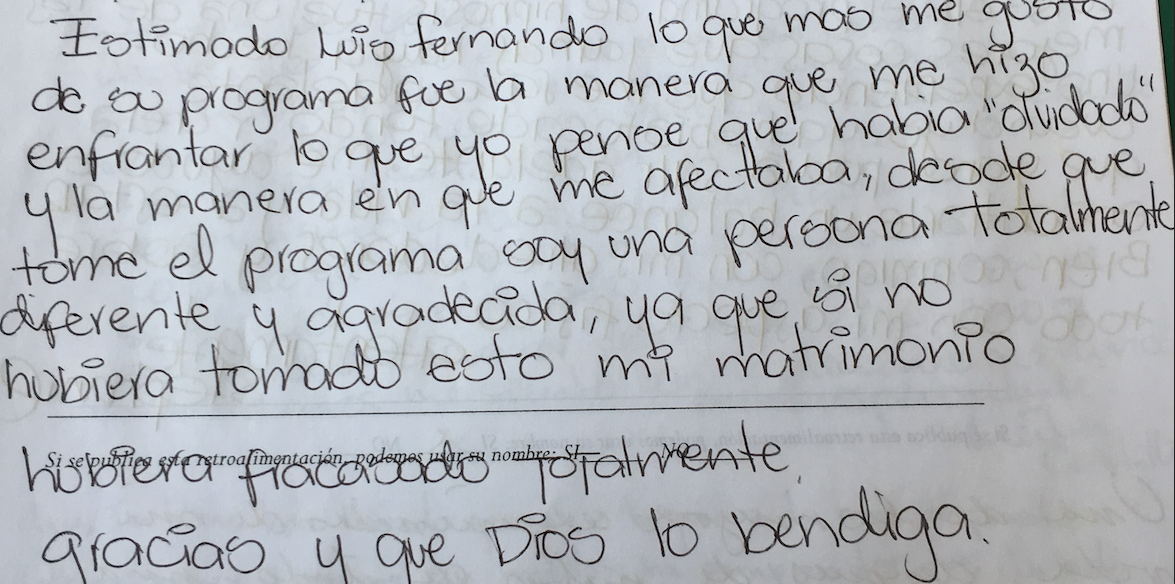 Estimado Luis fernando lo que mas me gusto
de su programa fue la manera que me hizo
enfrantar lo que yo pense que habia "olvidado"
y la manera en que me afectaba, desde que
tome el programa soy una persona totalmente
diferente y agradecida, ya que si no
hubiera tomado esto mi matrimonio
Si se publica esta retroalimentación, podemos usar su nombre: SI NO
hubiera fracasado totalmente.
gracias y que Dios lo bendiga.